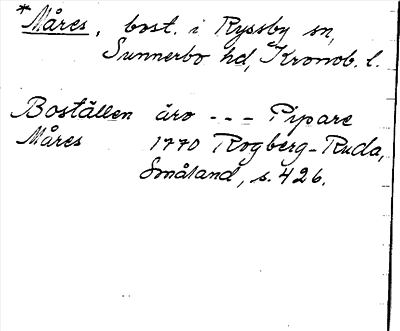 *Måres, bost. i Ryssby sn,
Sunnerbo hd, Kronob. l.
Boställen äro - - - Pipare
Måres 1770 Rogberg-Ruda,
Småland, s. 426.